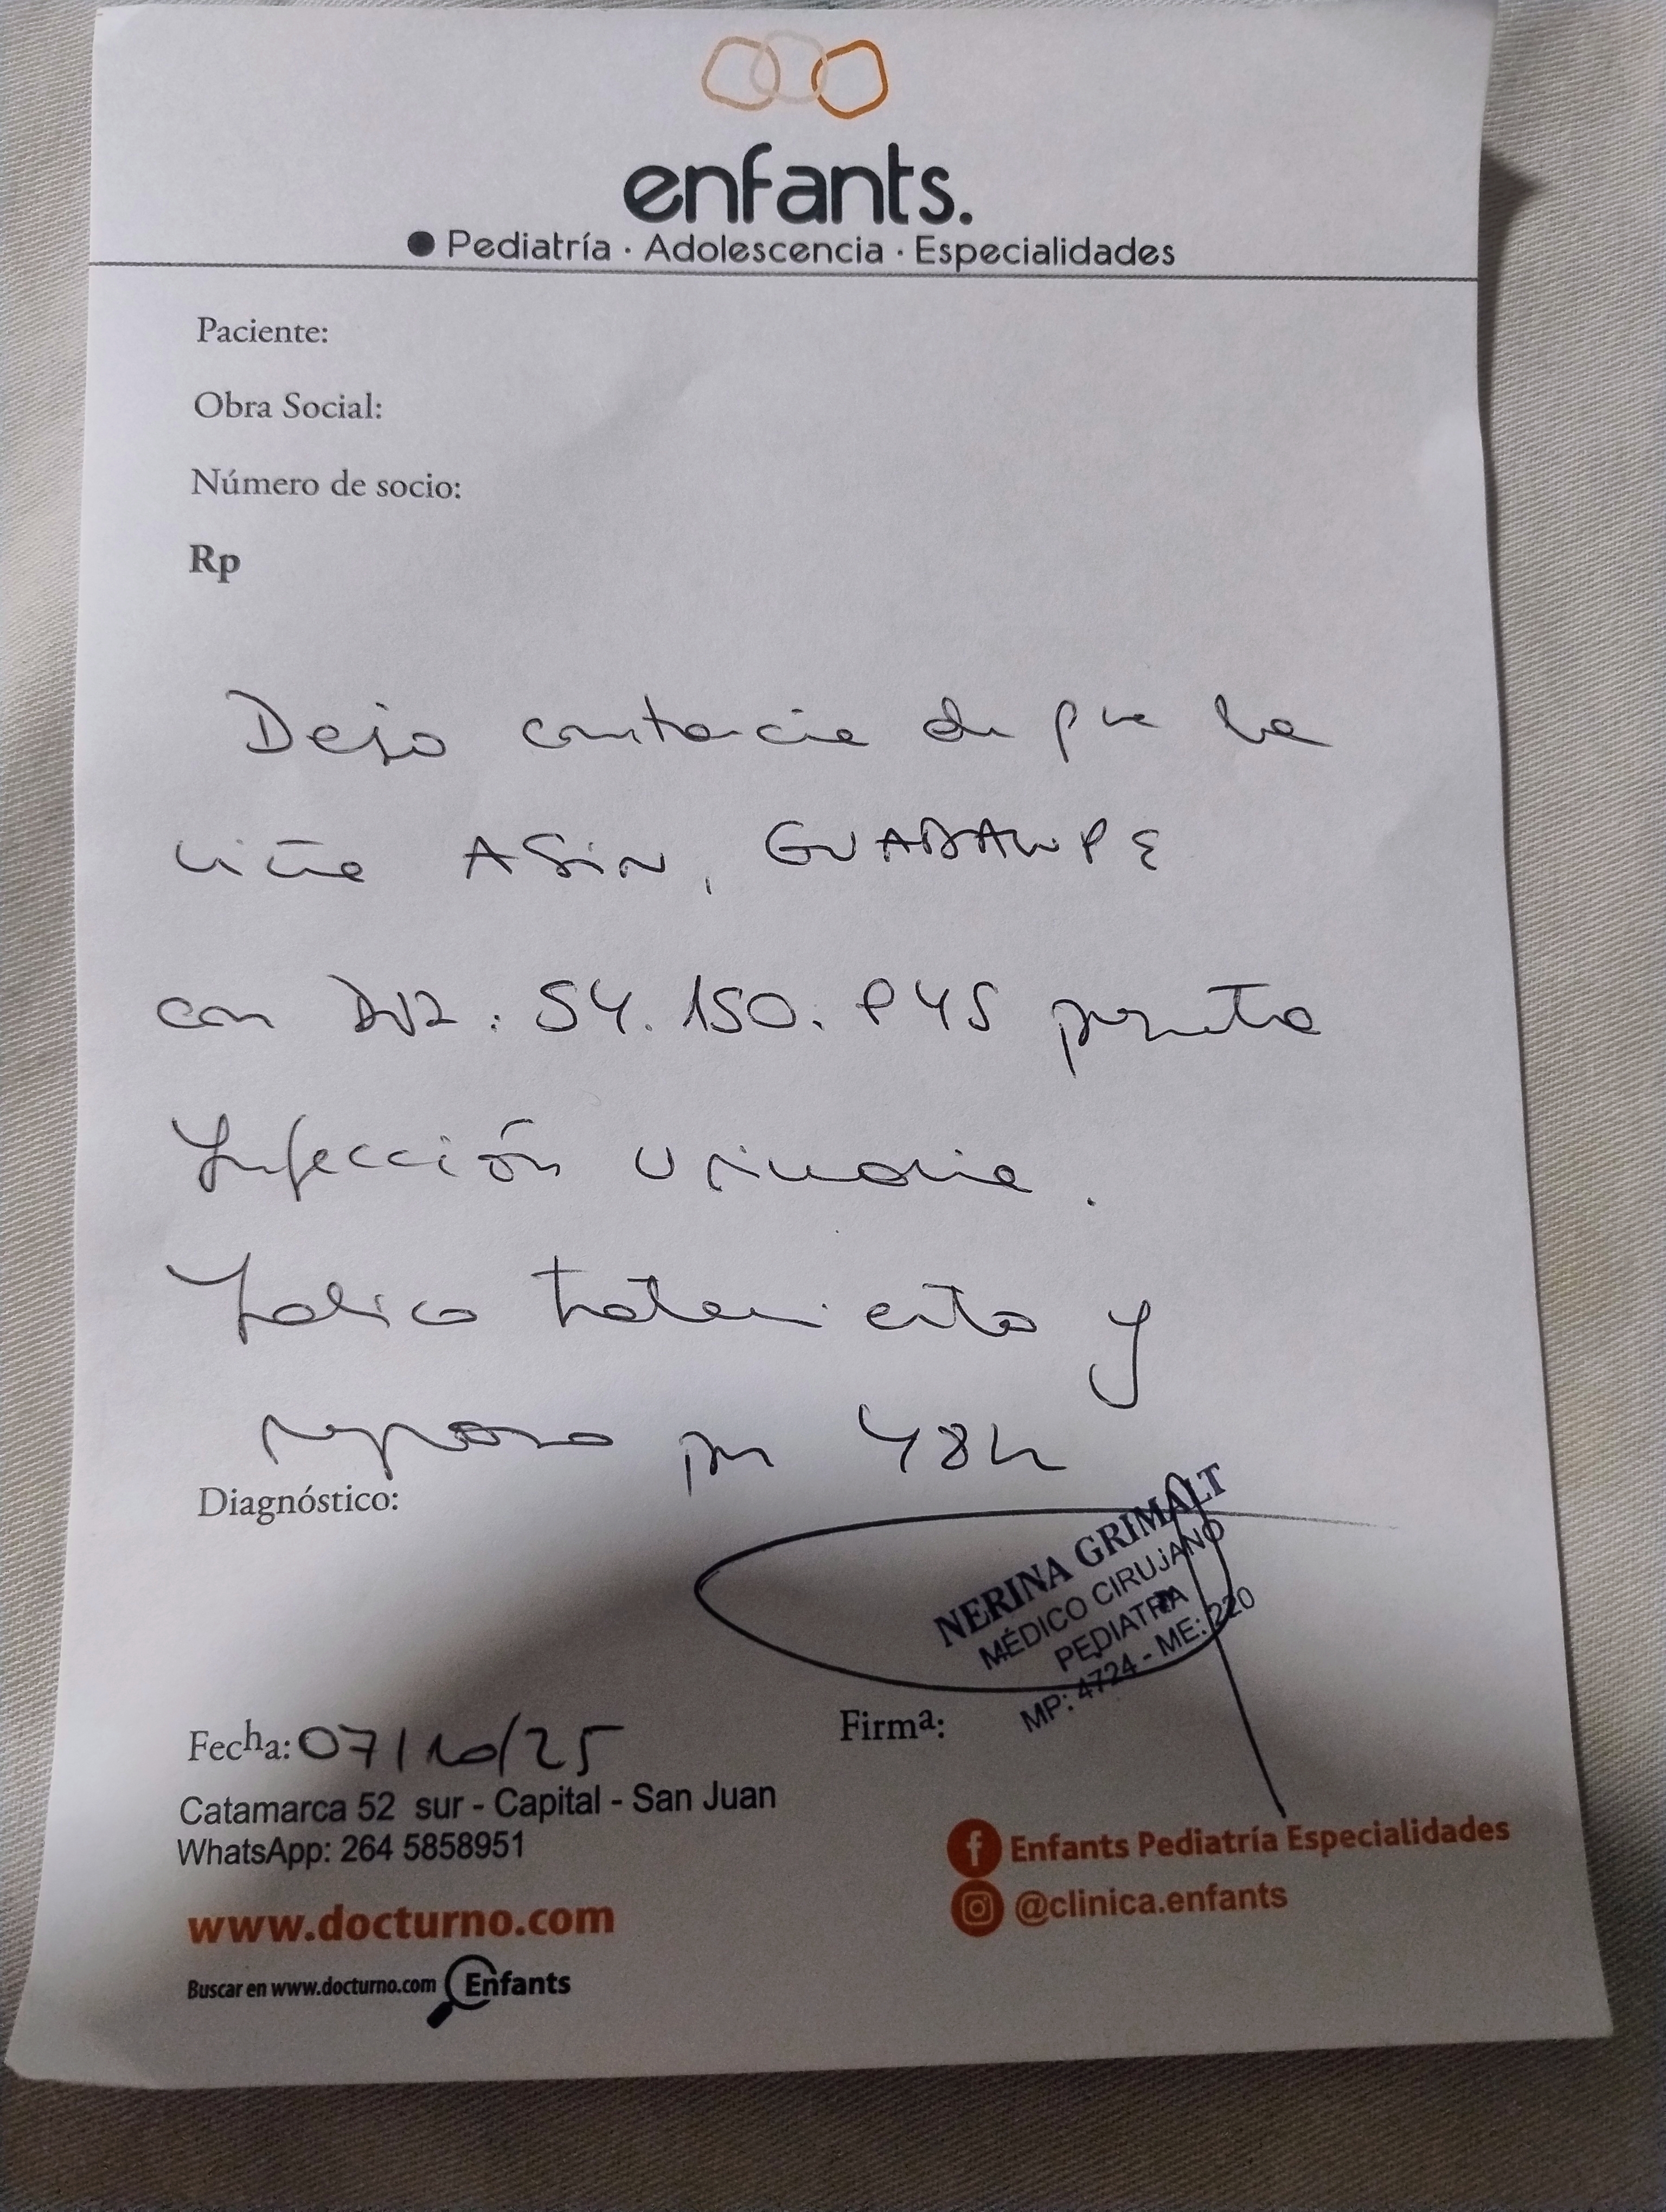 enfants.
Pediatría · Adolescencia · Especialidades
Paciente:
Obra Social:
Número de socio:
Rp
Dejo constancia de que la
niña ASiN, GUADALUPE
con DNI: 54.150.845 presenta
Infección urinaria.
Indico tratamiento y
reposo por 48h
Diagnóstico:
NERINA GRIMALT
MÉDICO CIRUJANO
PEDIATRA
MP: 4724 - ME: 220
Firma:
Fecha: 07/10/25
Catamarca 52 sur - Capital - San Juan
WhatsApp: 264 5858951
Enfants Pediatría Especialidades
@clinica.enfants
www.docturno.com
Buscar en www.docturno.com Enfants